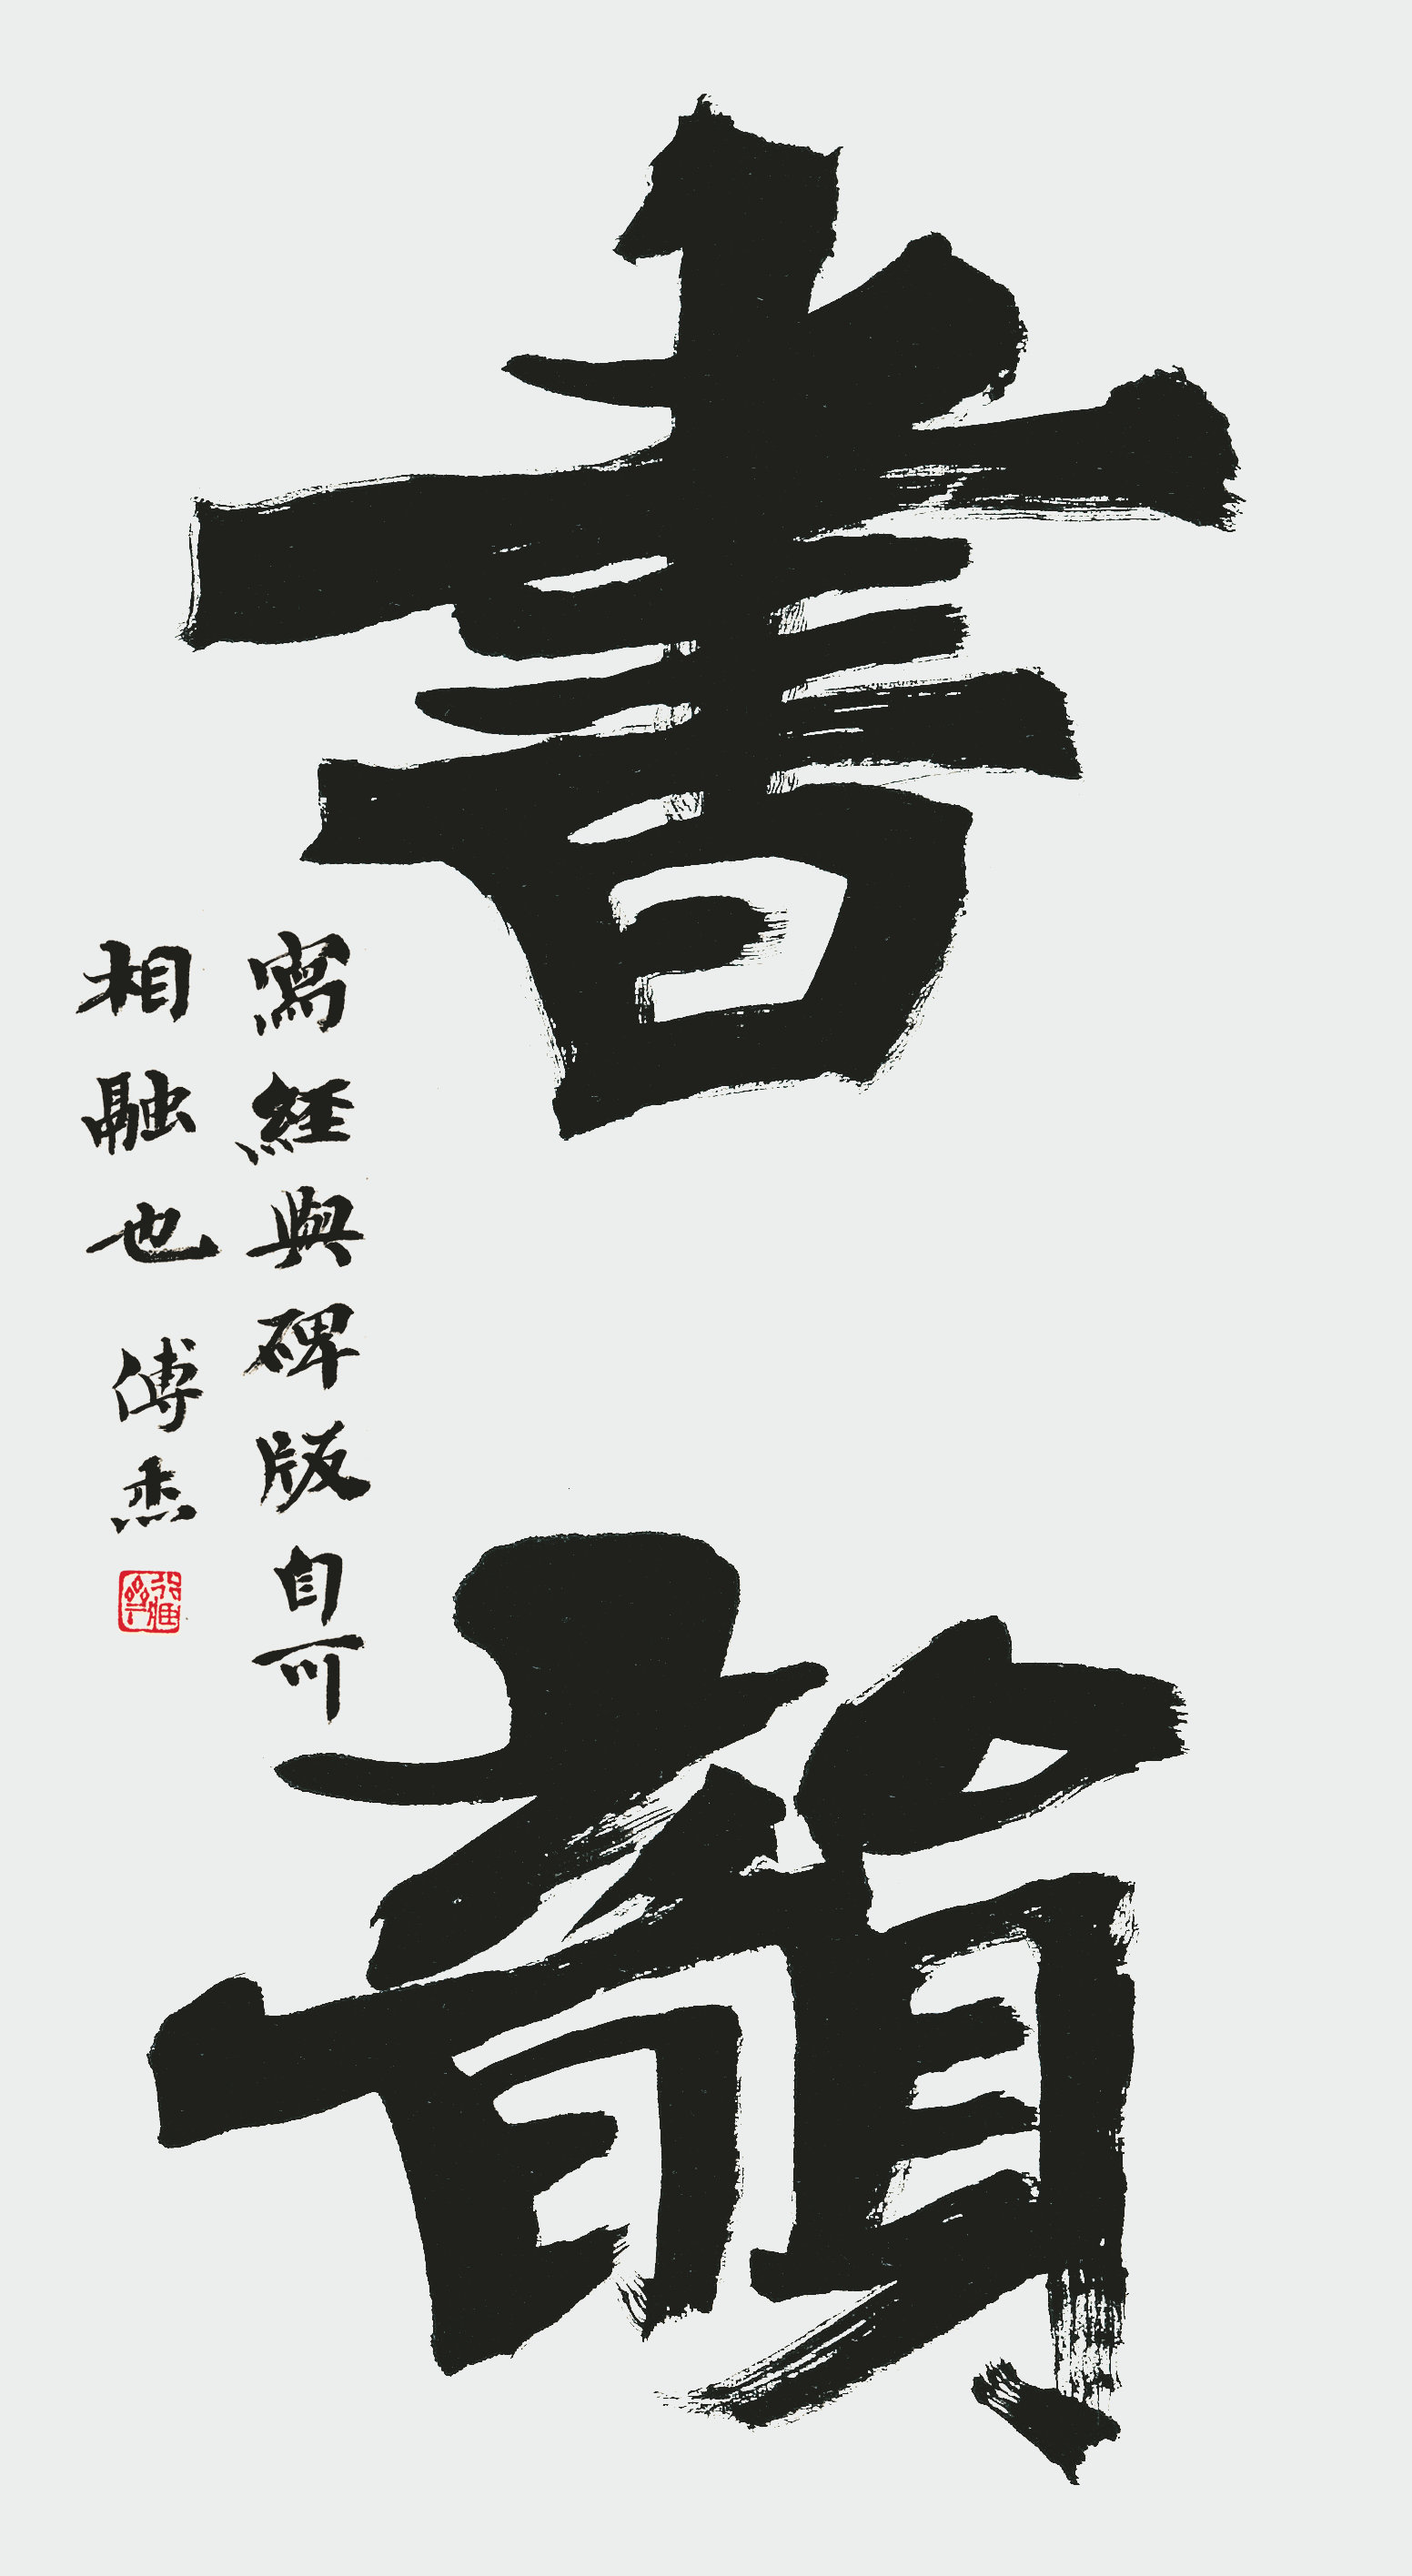 書
韻
寫經與碑版自可
相融也 傅杰